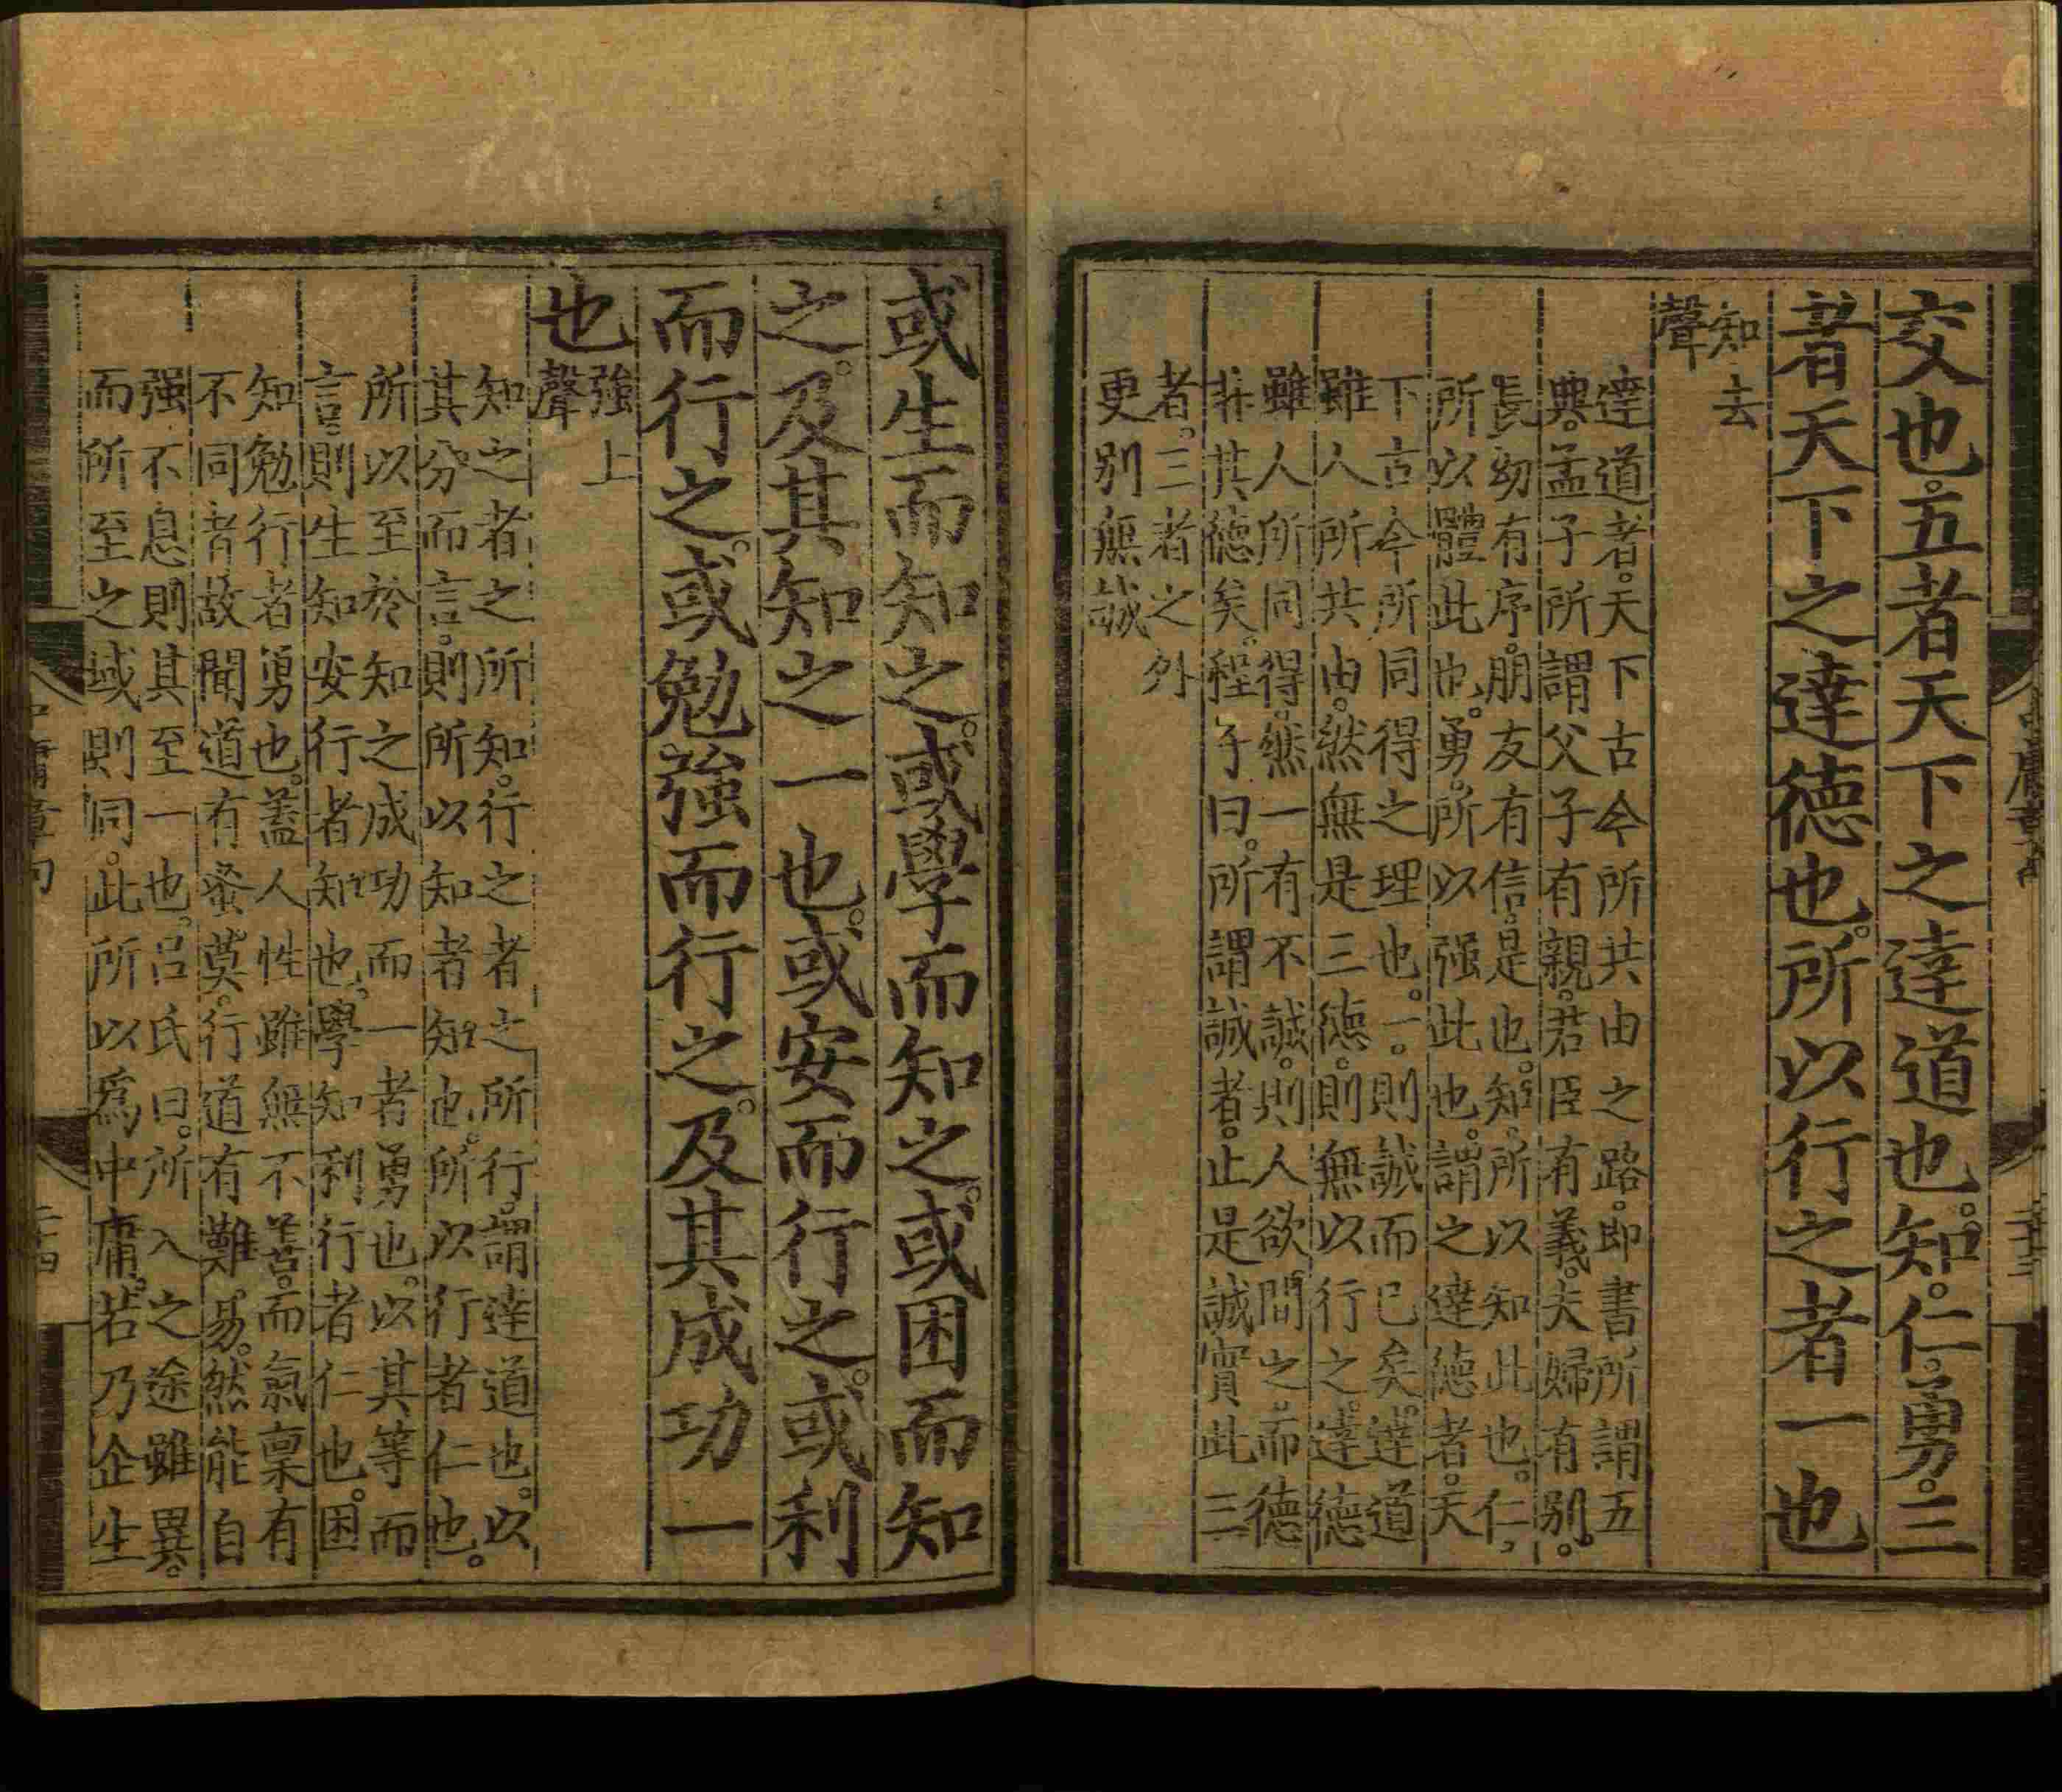 交也。五者天下之達道也。知。仁。勇。三
者天下之達德也。所以行之者一也
知去
聲
達道者。天下古今所共由之路。即書所謂五
典。孟子所謂父子有親。君臣有義。夫婦有別。
長幼有序。朋友有信。是也。知。所以知此也。仁。
所以體此也。勇。所以强此也。謂之達德者。天
下古今所同得之理也。一。則誠而已矣。達道
雖人所共由。然無是三德。則無以行之。達德
雖人所同得。然一有不誠。則人欲間之。而德
非其德矣。程子曰。所謂誠者。止是誠實此三
者。三者之外
更別無誠
或生而知之。或學而知之。或困而知
之。及其知之一也。或安而行之。或利
而行之。或勉強而行之。及其成功一
也
強上
聲
知之者之所知。行之者之所行。謂達道也。以
其分而言。則所以知者知也。所以行者仁也。
所以至於知之成功而一者勇也。以其等而
言。則生知安行者知也。學知利行者仁也。困
知勉行者勇也。蓋人性雖無不善。而氣稟有
不同者故聞道有蚤莫。行道有難易。然能自
强不息則其至一也。呂氏曰。所入之途雖異。
而所至之域則同。此所以爲中庸。若乃企生
中庸章句
二十四